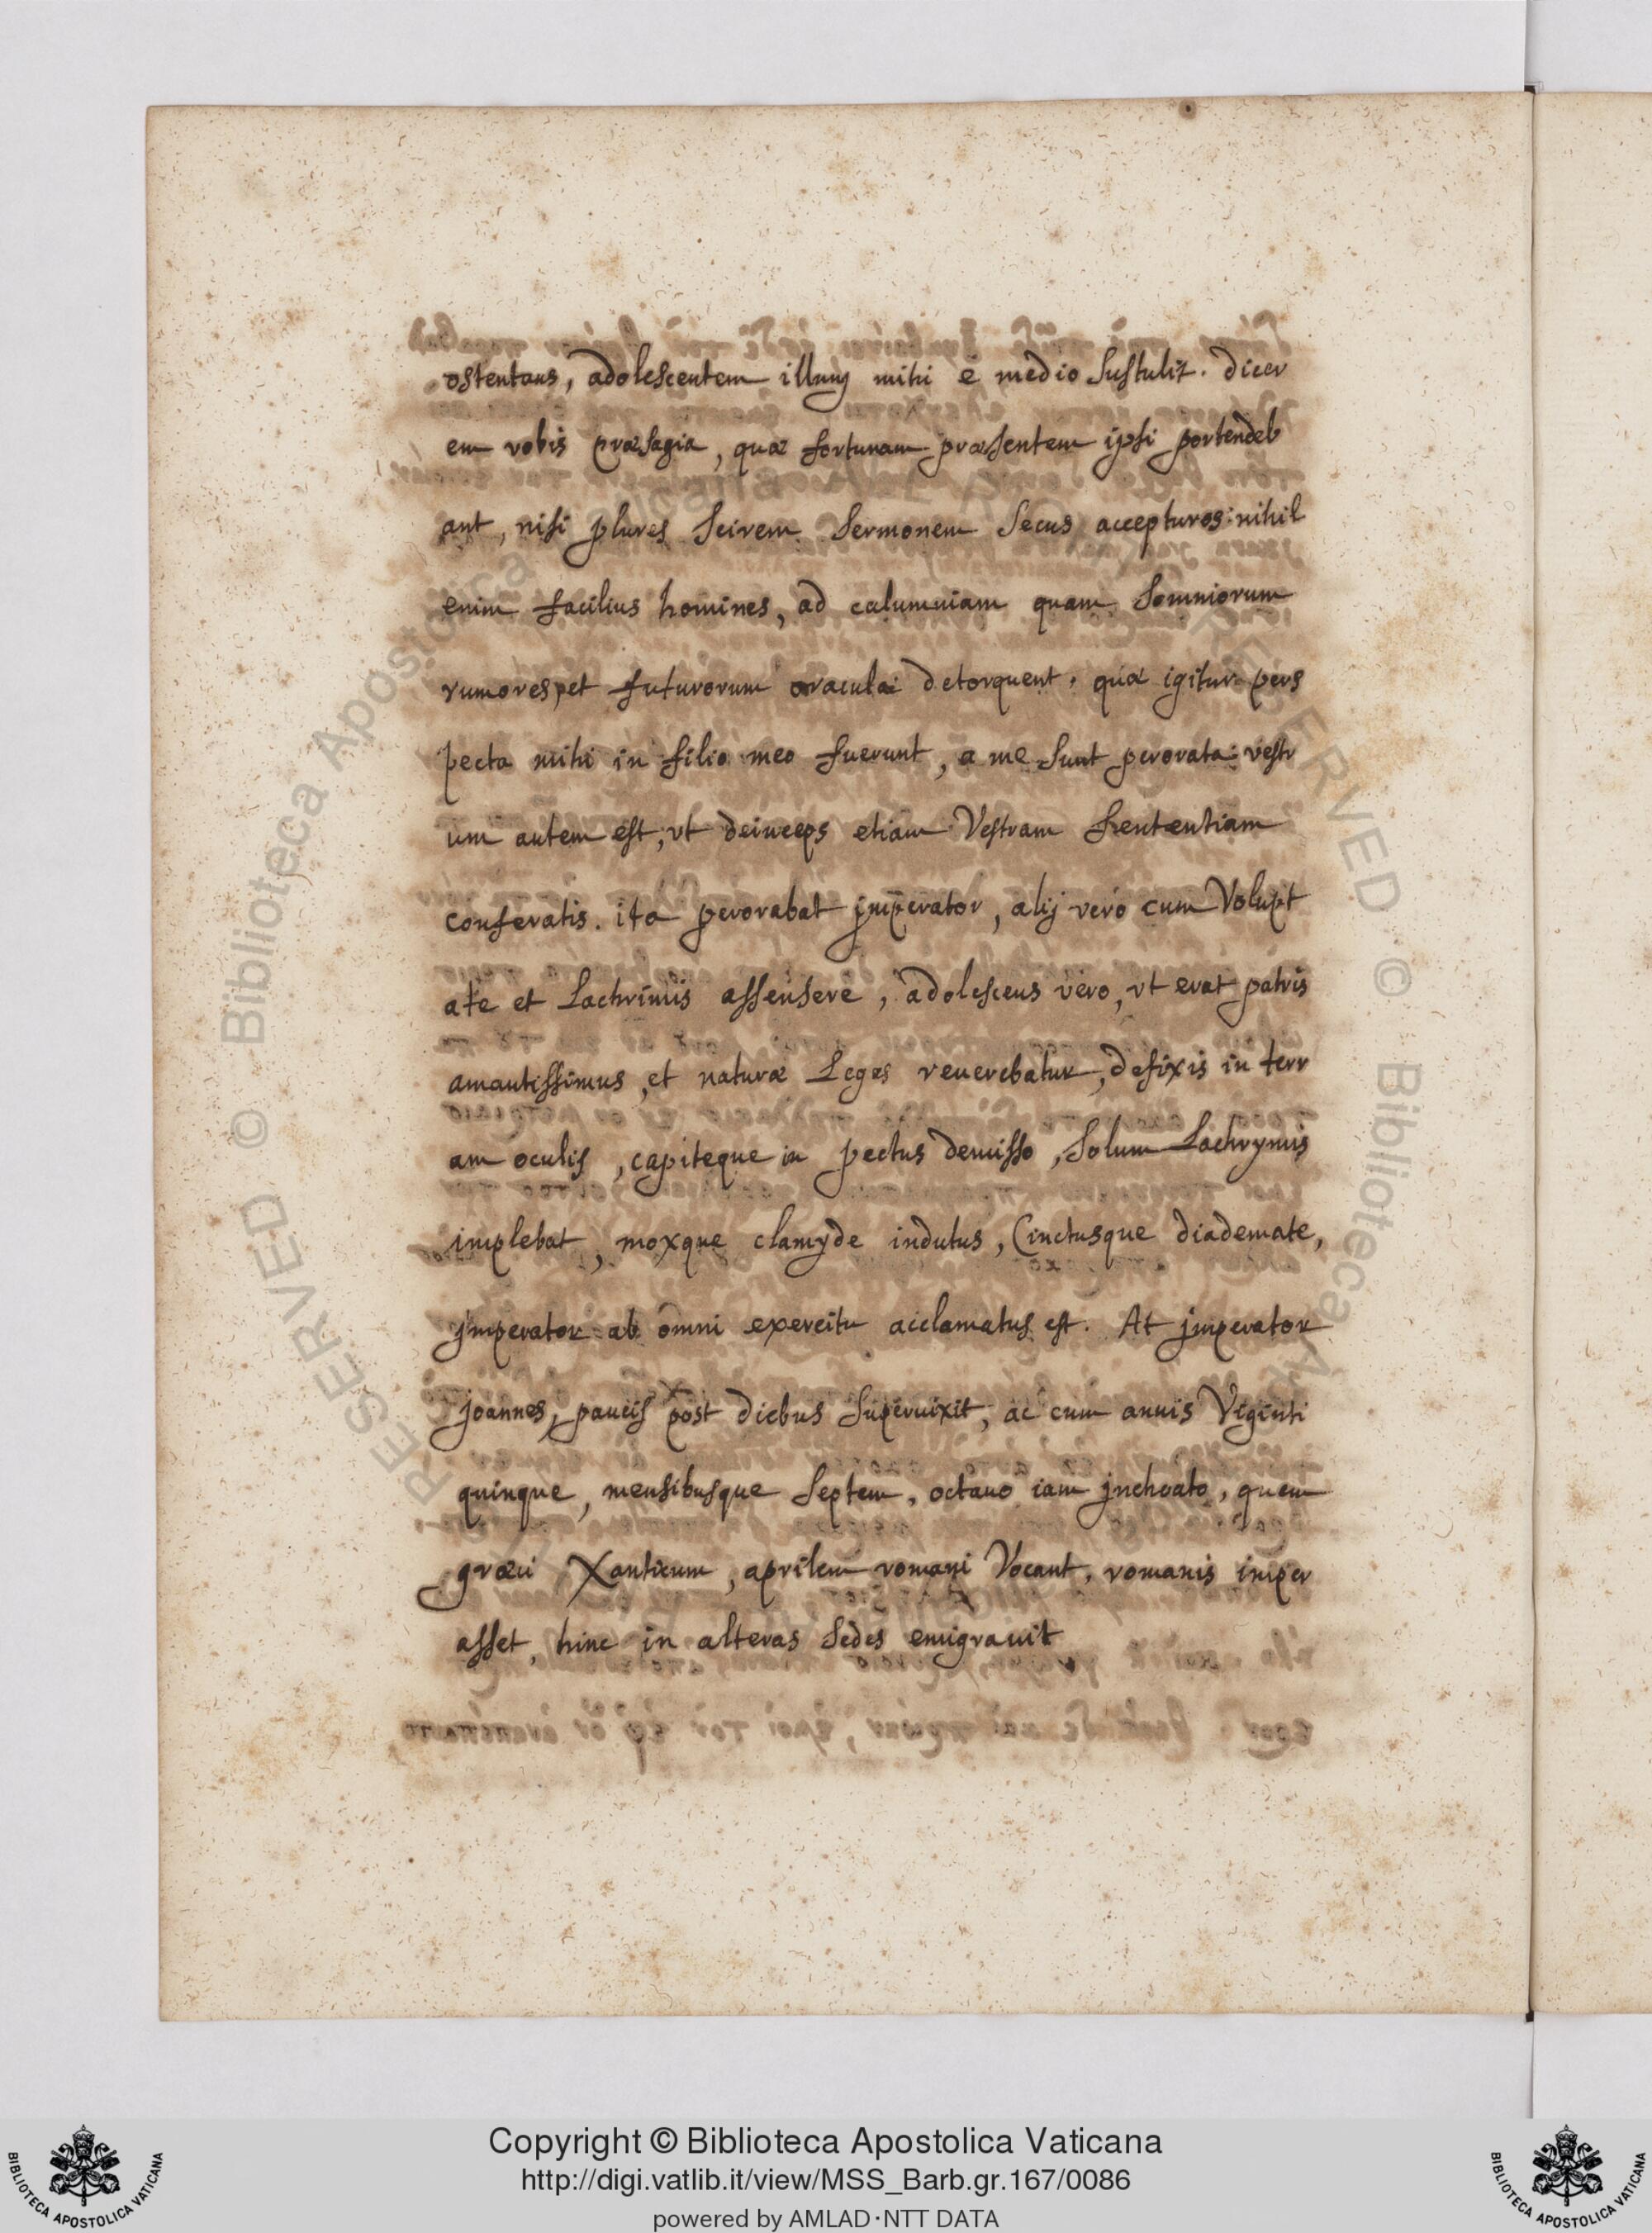 ostentans, adolescentem illum mihi è medio sustulit. dicer
em vobis præsagia, quæ fortunam præsentem ipsi portendeb
ant, nisi plures scirem sermonem secus accepturos: nihil
enim facilius homines, ad calumniam quam somniorum
rumores, et futurorum oracula detorquent. quæ igitur pers
pecta mihi in filio meo fuerunt, a me sunt perorata: vestr
um autem est, vt deinceps etiam Vestram sententiam
conferatis. ita perorabat jmperator, alij vero cum Volupt
ate et Lachrimis assensere, adolescens vero, vt erat patris
amantissimus, et naturæ Leges reuerebatur, defixis in terr
am oculis, capiteque in pectus demisso, solum Lachrymis
implebat, moxque clamyde indutus, Cinctusque diademate,
jmperator ab omni exercitu acclamatus est. At jmperator
joannes, paucis post diebus superuixit, ac cum annis Viginti
quinque, mensibusque septem, octauo iam jnchoato, quem
græci Xanticum, aprilem romani Vocant, romanis imper
asset, hinc in alteras sedes emigrauit
Copyright © Biblioteca Apostolica Vaticana
http://digi.vatlib.it/view/MSS_Barb.gr.167/0086
powered by AMLAD·NTT DATA